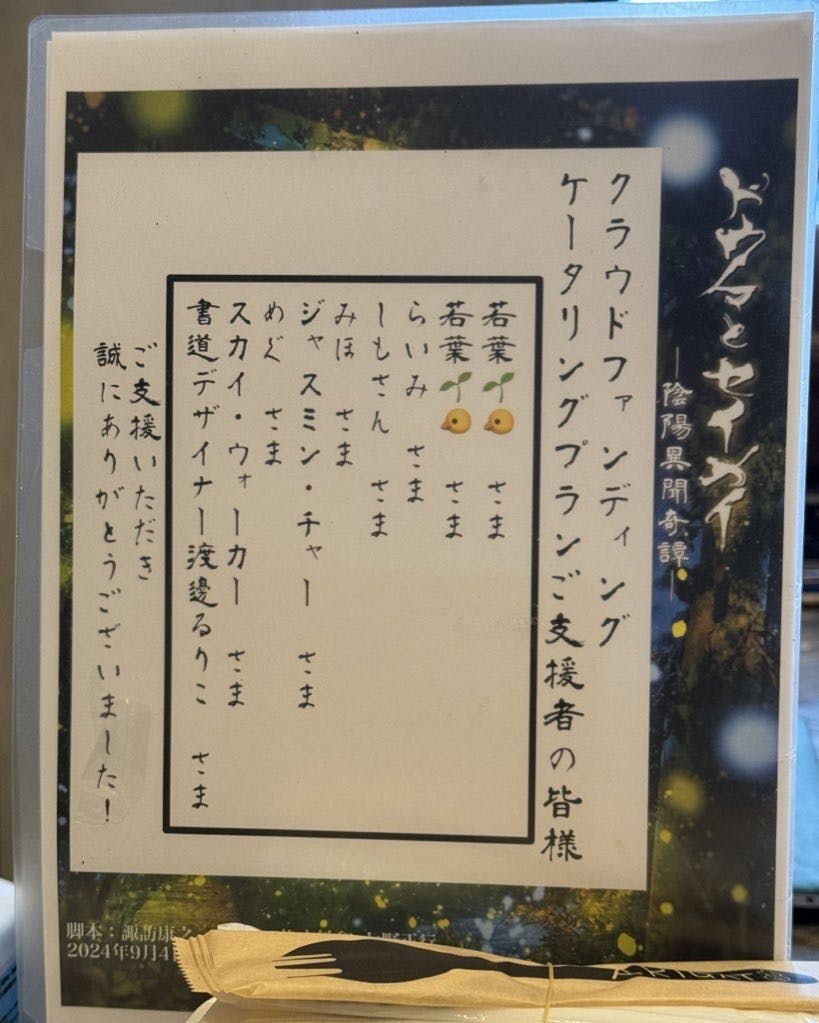 ドウマとセイメイ
―陰陽異聞奇譚―
クラウドファンディング
ケータリングプランご支援者の皆様
若葉🌱🐤 さま
若葉🌱🐤 さま
らいみ さま
しもさん さま
みほ さま
ジャスミン・チャー さま
めぐ さま
スカイ・ウォーカー さま
書道デザイナー渡邊るりこ さま
ご支援いただき
誠にありがとうございました！
脚本：諏訪康之
2024年9月4日